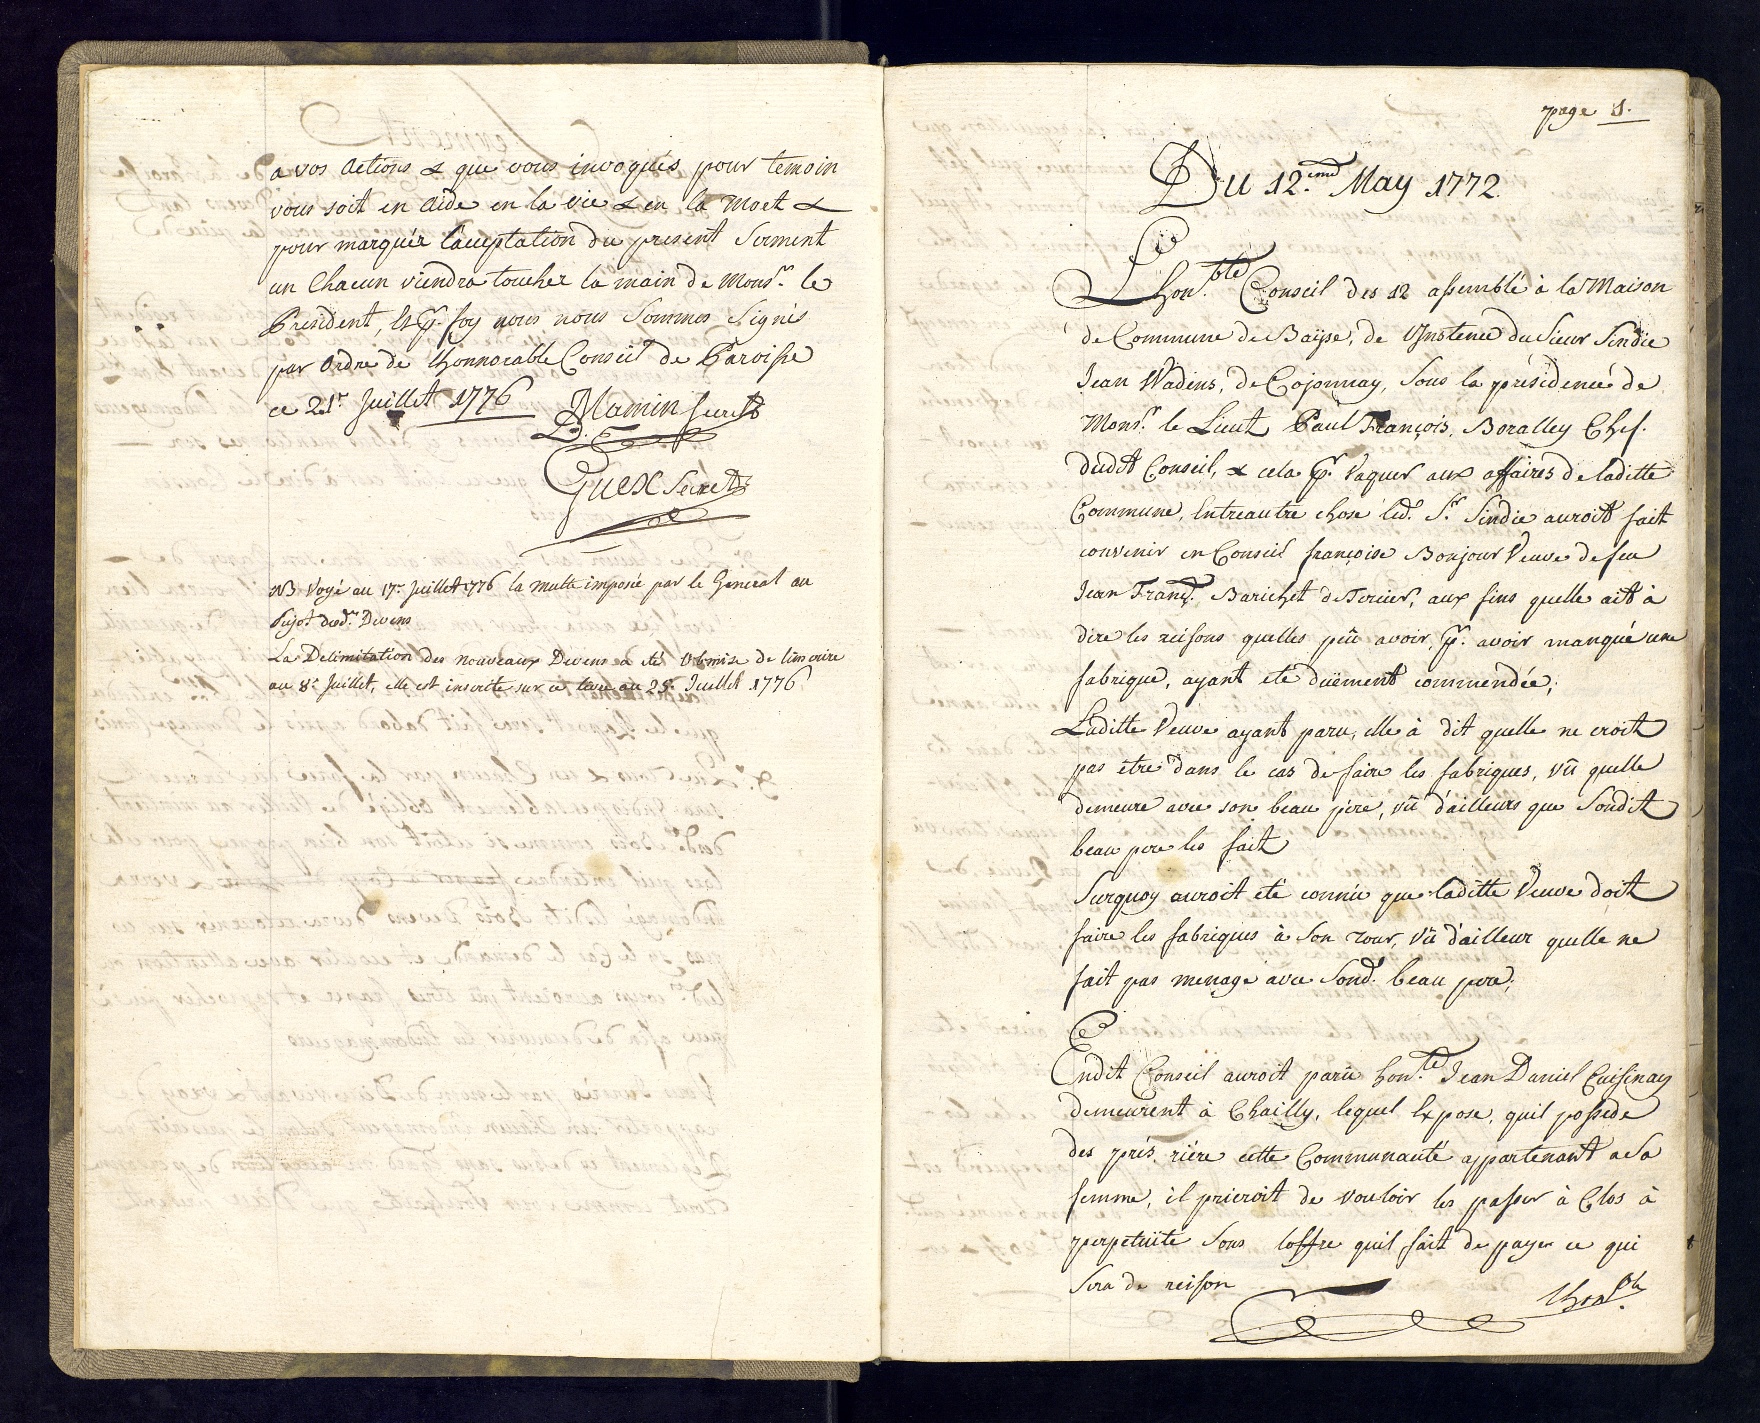 a vos actions & que vous invoqués pour temoin
vous soit en aide en la vie & en la Mort &
pour marquér l'aceptation du present Serment
un Chacun viendra toucher la main de Mons.r le
President, En foy nous nous Sommes Signés
par Ordre de Lhonnorable Conseil de Paroisse
ce 21.r Juillet 1776 Mamin Secret
D.
Guex Secret
NB Voyé au 17.e Juillet 1776 la multe imposée par le General au
Sujet desd.t Devens
La Delimitation des nouveaux Devens a été Obmise de linscrire
au 8.e Juillet, elle est inscrite sur ce livre au 25.e Juillet 1776
page 1.
Du 12.eme May 1772.
Lhon.ble Conseil des 12 assemblé à la Maison
de Commune de Baysse, de Lynstence du Sieur Sindic
Jean Wadens, de Cojonnay, Sous la présidence de
Mons.r le Lieut Paul François, Boralley Chef.
dudit Conseil, & cela p.r Vaquer aux affaires de laditte
Commune, Entreautre chose led. S.r Sindic auroit fait
convenir en Conseil françoise Bonjour Veuve de feu
Jean Franç. Barichet de Tercier, aux fins quelle ait à
dire les reisons quelles peu avoir, p.r avoir manqué une
fabrique, ayant eté duëment commendée;
Laditte Veuve ayant paru, elle à dit quelle ne croit
pas etre dans le cas de faire les fabriques, vû quelle
demeure avec son beau père, vû d'ailleurs que Soudit
beau pere les fait
Surquoy auroit eté connüe que laditte Veuve doit
faire les fabriques à Son tour, vû d'ailleur quelle ne
fait pas menage avec Soud. beau pere;
Endit Conseil auroit parû hon.te Jean Daniel Cuisinay
demeurent à Chailly, lequel Expose, quil possede
des prés riére cette Communauté appartenant a Sa
femme, il prieroit de vouloir les passer à Clos à
perpetuité Sous loffre quil fait de payer ce qui
Sera de reison
Lhon.ble